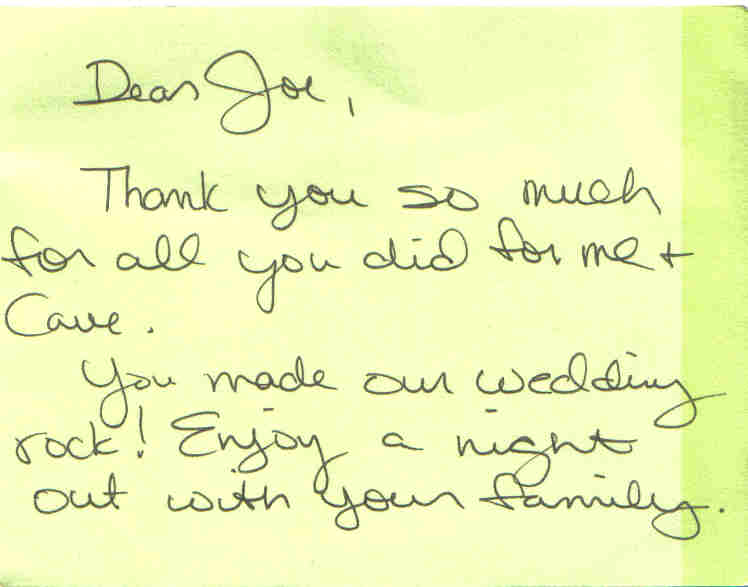 Dear Joe,
Thank you so much
for all you did for me +
Cave.
You made our wedding
rock! Enjoy a night
out with your family.